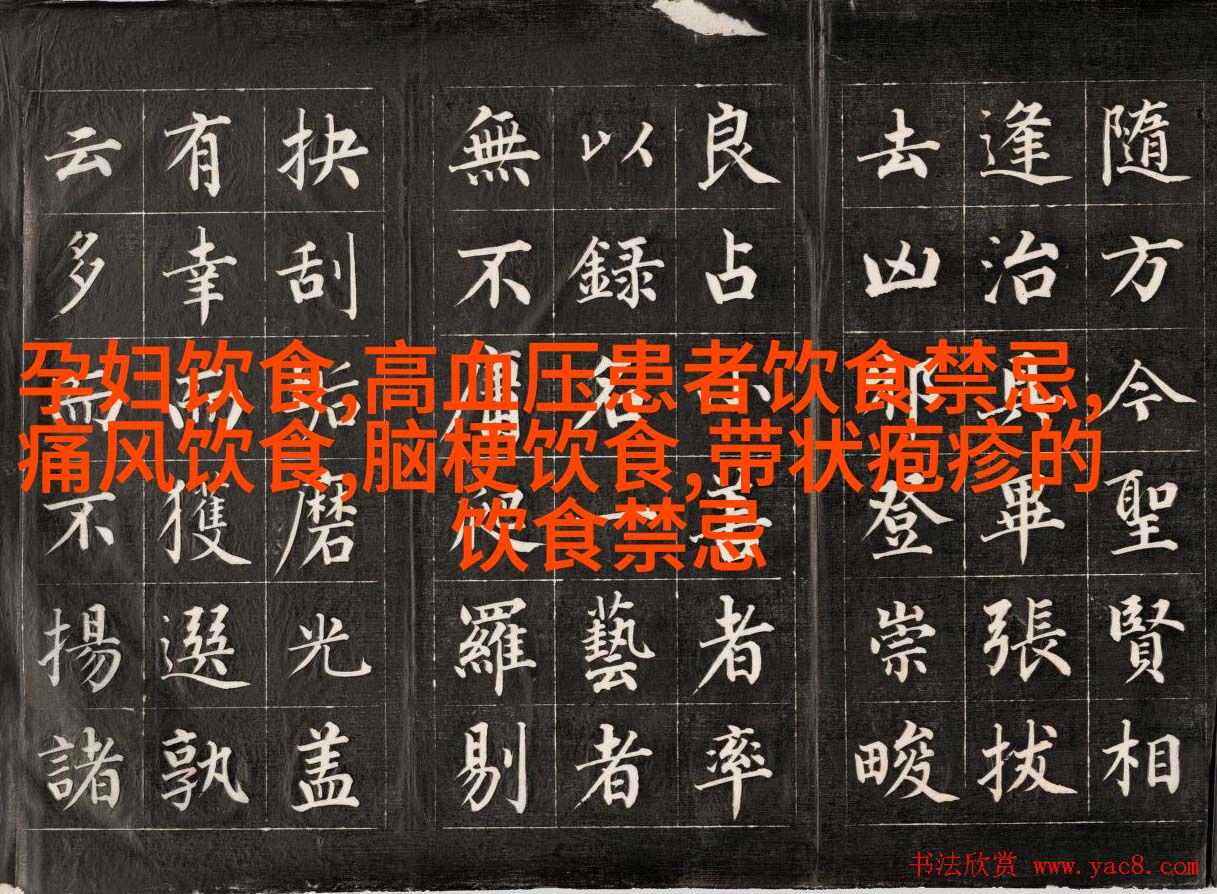 孕妇饮食,高血压患者饮食禁忌,
痛风饮食,脑梗饮食,带状疱疹的
饮食禁忌
隨方今聖賢相
逢治具畢張拔
去凶邪登崇畯
良占小善者率
以録名一藝者
無不庸爬羅剔
抉刮垢磨光盖
有幸而獲選孰
云多而不揚諸
书法欣赏 www.yac8.com